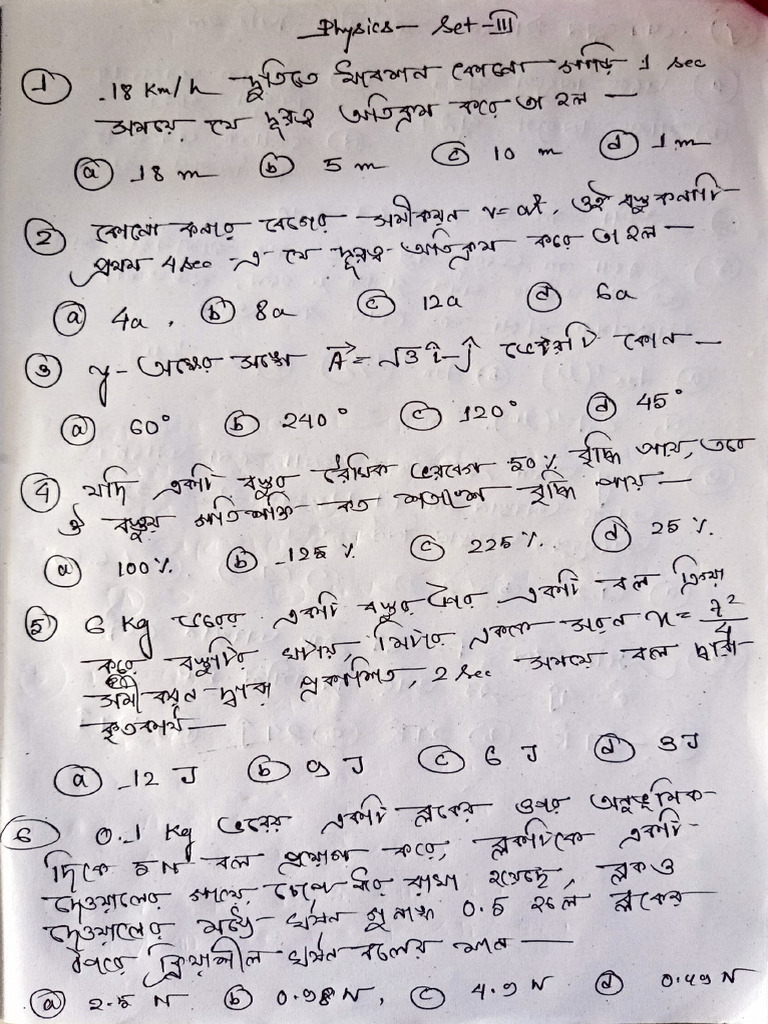 Physics - Set - III
① 18 Km/h দ্রুতিতে ধাবমান কোনো গাড়ি 1 sec
সময়ে যে দূরত্ব অতিক্রম করে তা হল —
ⓐ 18 m ⓑ 5 m ⓒ 10 m ⓓ 1 m
② কোনো কনার বেগের সমীকরন v = at, ওই বস্তু কনাটি
প্রথম 4 sec -এ যে দূরত্ব অতিক্রম করে তা হল —
ⓐ 4a, ⓑ 8a ⓒ 12a ⓓ 6a
③ y - অক্ষের সঙ্গে A⃗ = √3 î - ĵ ভেক্টরটি কোন —
ⓐ 60° ⓑ 240° ⓒ 120° ⓓ 45°
④ যদি একটি বস্তুর রৈখিক ভরবেগ 50% বৃদ্ধি পায়, তবে
ঐ বস্তুর গতিশক্তি কত শতাংশ বৃদ্ধি পায় —
ⓐ 100% ⓑ 125% ⓒ 225% ⓓ 25%
⑤ 6 Kg ভরের একটি বস্তুর উপর একটি বল ক্রিয়া
করে বস্তুটির ঘটায়, মিটার এককে সরন x = t²/4
সমীকরন দ্বারা প্রকাশিত, 2 sec সময়ে বল দ্বারা
কৃতকার্য —
ⓐ 12 J ⓑ 9 J ⓒ 6 J ⓓ 3 J
⑥ 0.1 Kg ভরের একটি ব্লকের ওপর অনুভূমিক
দিকে 5 N বল প্রয়োগ করে, ব্লকটিকে একটি
দেওয়ালের সাথে চেপে ধরে রাখা হয়েছে, ব্লক ও
দেওয়ালের মধ্যে ঘর্ষন গুনাঙ্ক 0.5 হলে ব্লকের
উপরে ক্রিয়াশীল ঘর্ষন বলের মান —
ⓐ 2.5 N ⓑ 0.98 N, ⓒ 4.9 N ⓓ 0.49 N